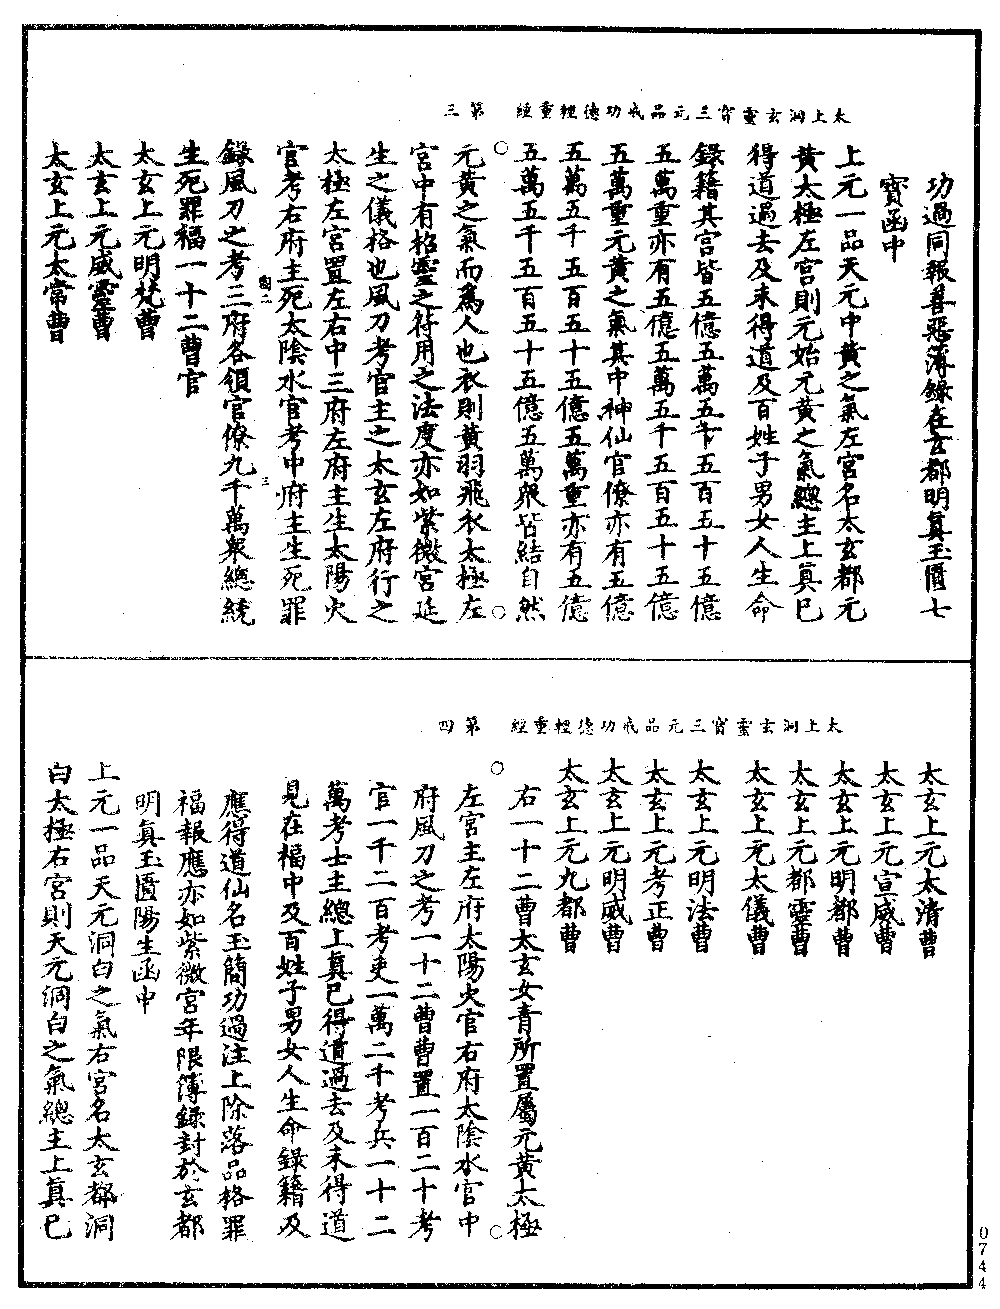 太上洞玄靈寳三元品戒功德輕重經　第三
功過同報善惡薄録在玄都明真玉匱七
寳函中
上元一品天元中黄之氣左宮名太玄都元
黄太極左宮則元始元黄之氣總主上真已
得道過去及未得道及百姓子男女人生命
録籍其宮皆五億五萬五千五百五十五億
五萬重亦有五億五萬五千五百五十五億
五萬重元黄之氣其中神仙官僚亦有五億
五萬五千五百五十五億五萬重亦有五億
五萬五千五百五十五億五萬衆皆結自然
元黄之氣而爲人也衣則黄羽飛衣太極左
宮中有招靈之符用之法度亦如紫微宮延
生之儀格也風刀考官主之太玄左府行之
太極左宮置左右中三府左府主生太陽火
官考右府主死太陰水官考中府主生死罪
録風刀之考三府各領官僚九千萬衆總統
生死罪福一十二曹官
太玄上元明梵曹
太玄上元威靈曹
太玄上元太常曹
太上洞玄靈寳三元品戒功德輕重經　第四
太玄上元太清曹
太玄上元宣威曹
太玄上元明都曹
太玄上元都靈曹
太玄上元太儀曹
太玄上元明法曹
太玄上元考正曹
太玄上元明威曹
太玄上元九都曹
右一十二曹太玄女青所置屬元黄太極
左宮主左府太陽火官右府太陰水官中
府風刀之考一十二曹曹置一百二十考
官一千二百考吏一萬二千考兵一十二
萬考士主總上真已得道過去及未得道
見在福中及百姓子男女人生命録籍及
應得道仙名玉簡功過注上除落品格罪
福報應亦如紫微宮年限簿録封於玄都
明真玉匱陽生函中
上元一品天元洞白之氣右宮名太玄都洞
白太極右宮則天元洞白之氣總主上真已
0744